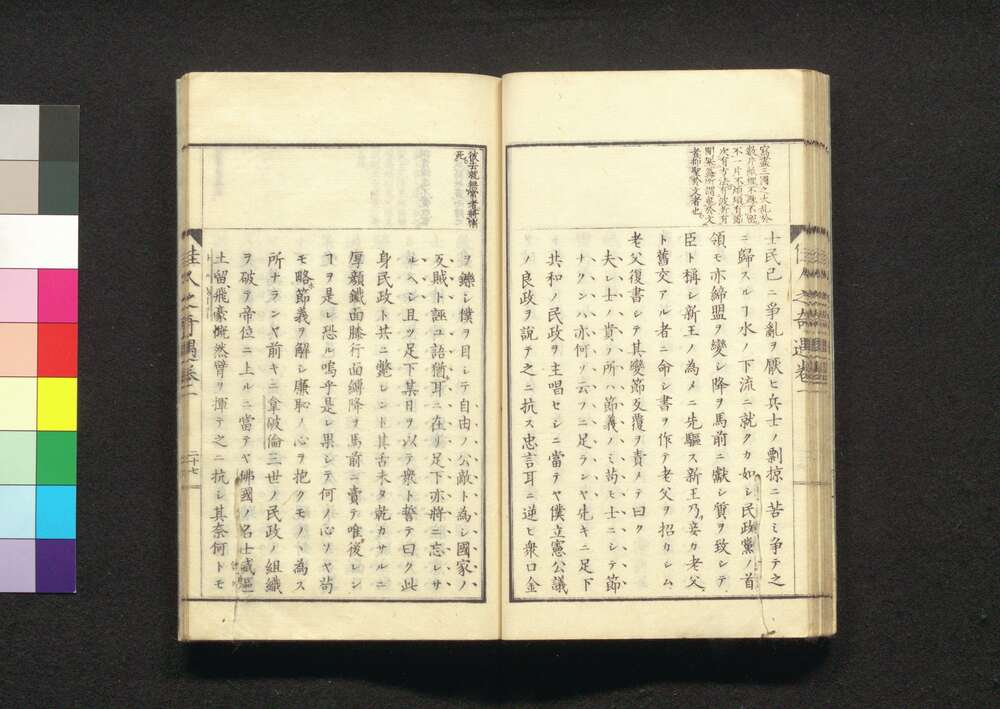 寫盡三國之大亂外
數片
不一片不煩有節
次有方法有波
者和聖外文者也
士民已ニ爭亂ヲ厭ヒ兵士ノ剽掠ニ苦ミ爭テ之
ニ歸スルヿ水ノ下流ニ就クカ如シ民政黨ノ首
領モ亦締盟ヲ變シ降ヲ馬前ニ獻シ質ヲ致シテ
臣ト稱シ新王ノ為メニ先驅ス新王乃チ妾カ老父
ト舊交アル者ニ命シ書ヲ作テ老父ヲ招カシム
老父復書シテ其變節反覆ヲ責メテ曰ク
夫レ士ノ貴フ所ハ節義ノミ苟モ士ニシテ節
ナクンハ亦何ソ云フニ足ランヤ先キニ足下
共和ノ民政ヲ主唱セシニ當テヤ僕立憲公議
ノ良政ヲ說テ之ニ抗ス忠言耳ニ逆ヒ衆口金
佳人之奇遇卷二
彼去就無常者耕
死
ヲ鑠シ僕ヲ目シテ自由ノ公敵ト為シ國家ノ
反賊ト誣ユ語猶耳ニ在リ足下亦將ニ忘レサ
ルヘシ且ツ足下某日ヲ以テ衆ト誓テ曰ク此
身民政ト共ニ斃レント其舌未タ乾カサルニ
厚顏鐵面膝行面縛降ヲ馬前ニ賣テ唯後レン
ヿヲ是レ恐ル嗚乎是レ果シテ何ノ心ソヤ苟
モ略節義ヲ解シ廉恥ノ心ヲ抱クモノヽ為ス
所ナランヤ前キニ拿破倫三世ノ民政ノ組織
ヲ破テ帝位ニ上ルニ當テヤ佛國ノ名士感驅
土留飛豪慨然臂ヲ揮テ之ニ抗シ其奈何トモ
佳人之奇遇卷二
二十七